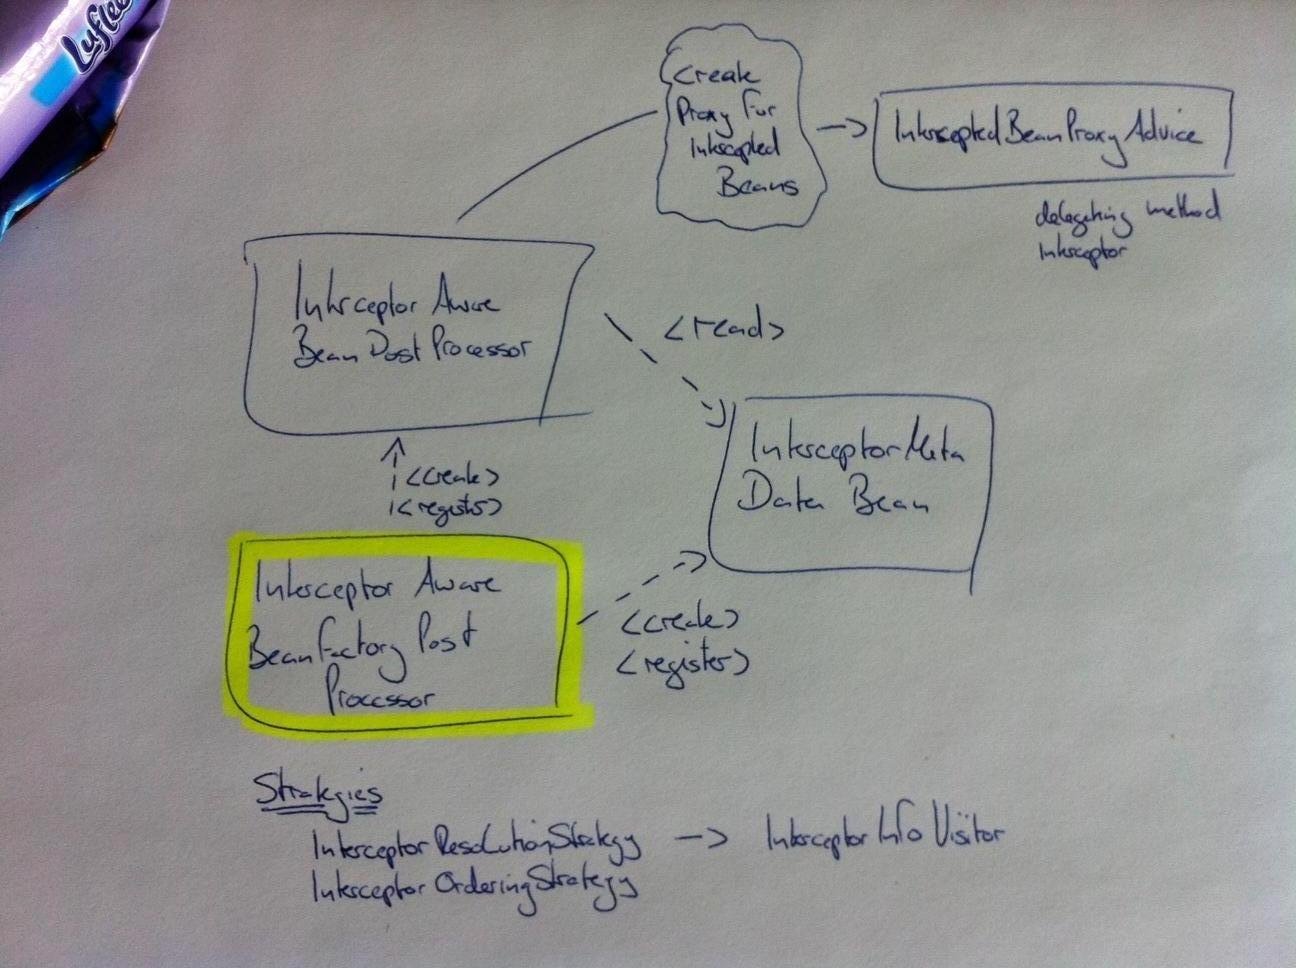 Luflee
Create
Proxy for
Intercepted
Beans
InterceptedBeanProxyAdvice
delegating method
Interceptor
Interceptor Aware
Bean Post Processor
<read>
Interceptor Meta
Data Bean
<create>
<register>
Interceptor Aware
BeanFactory Post
Processor
<create>
<register>
Strategies
InterceptorResolutionStrategy → InterceptorInfoVisitor
InterceptorOrderingStrategy